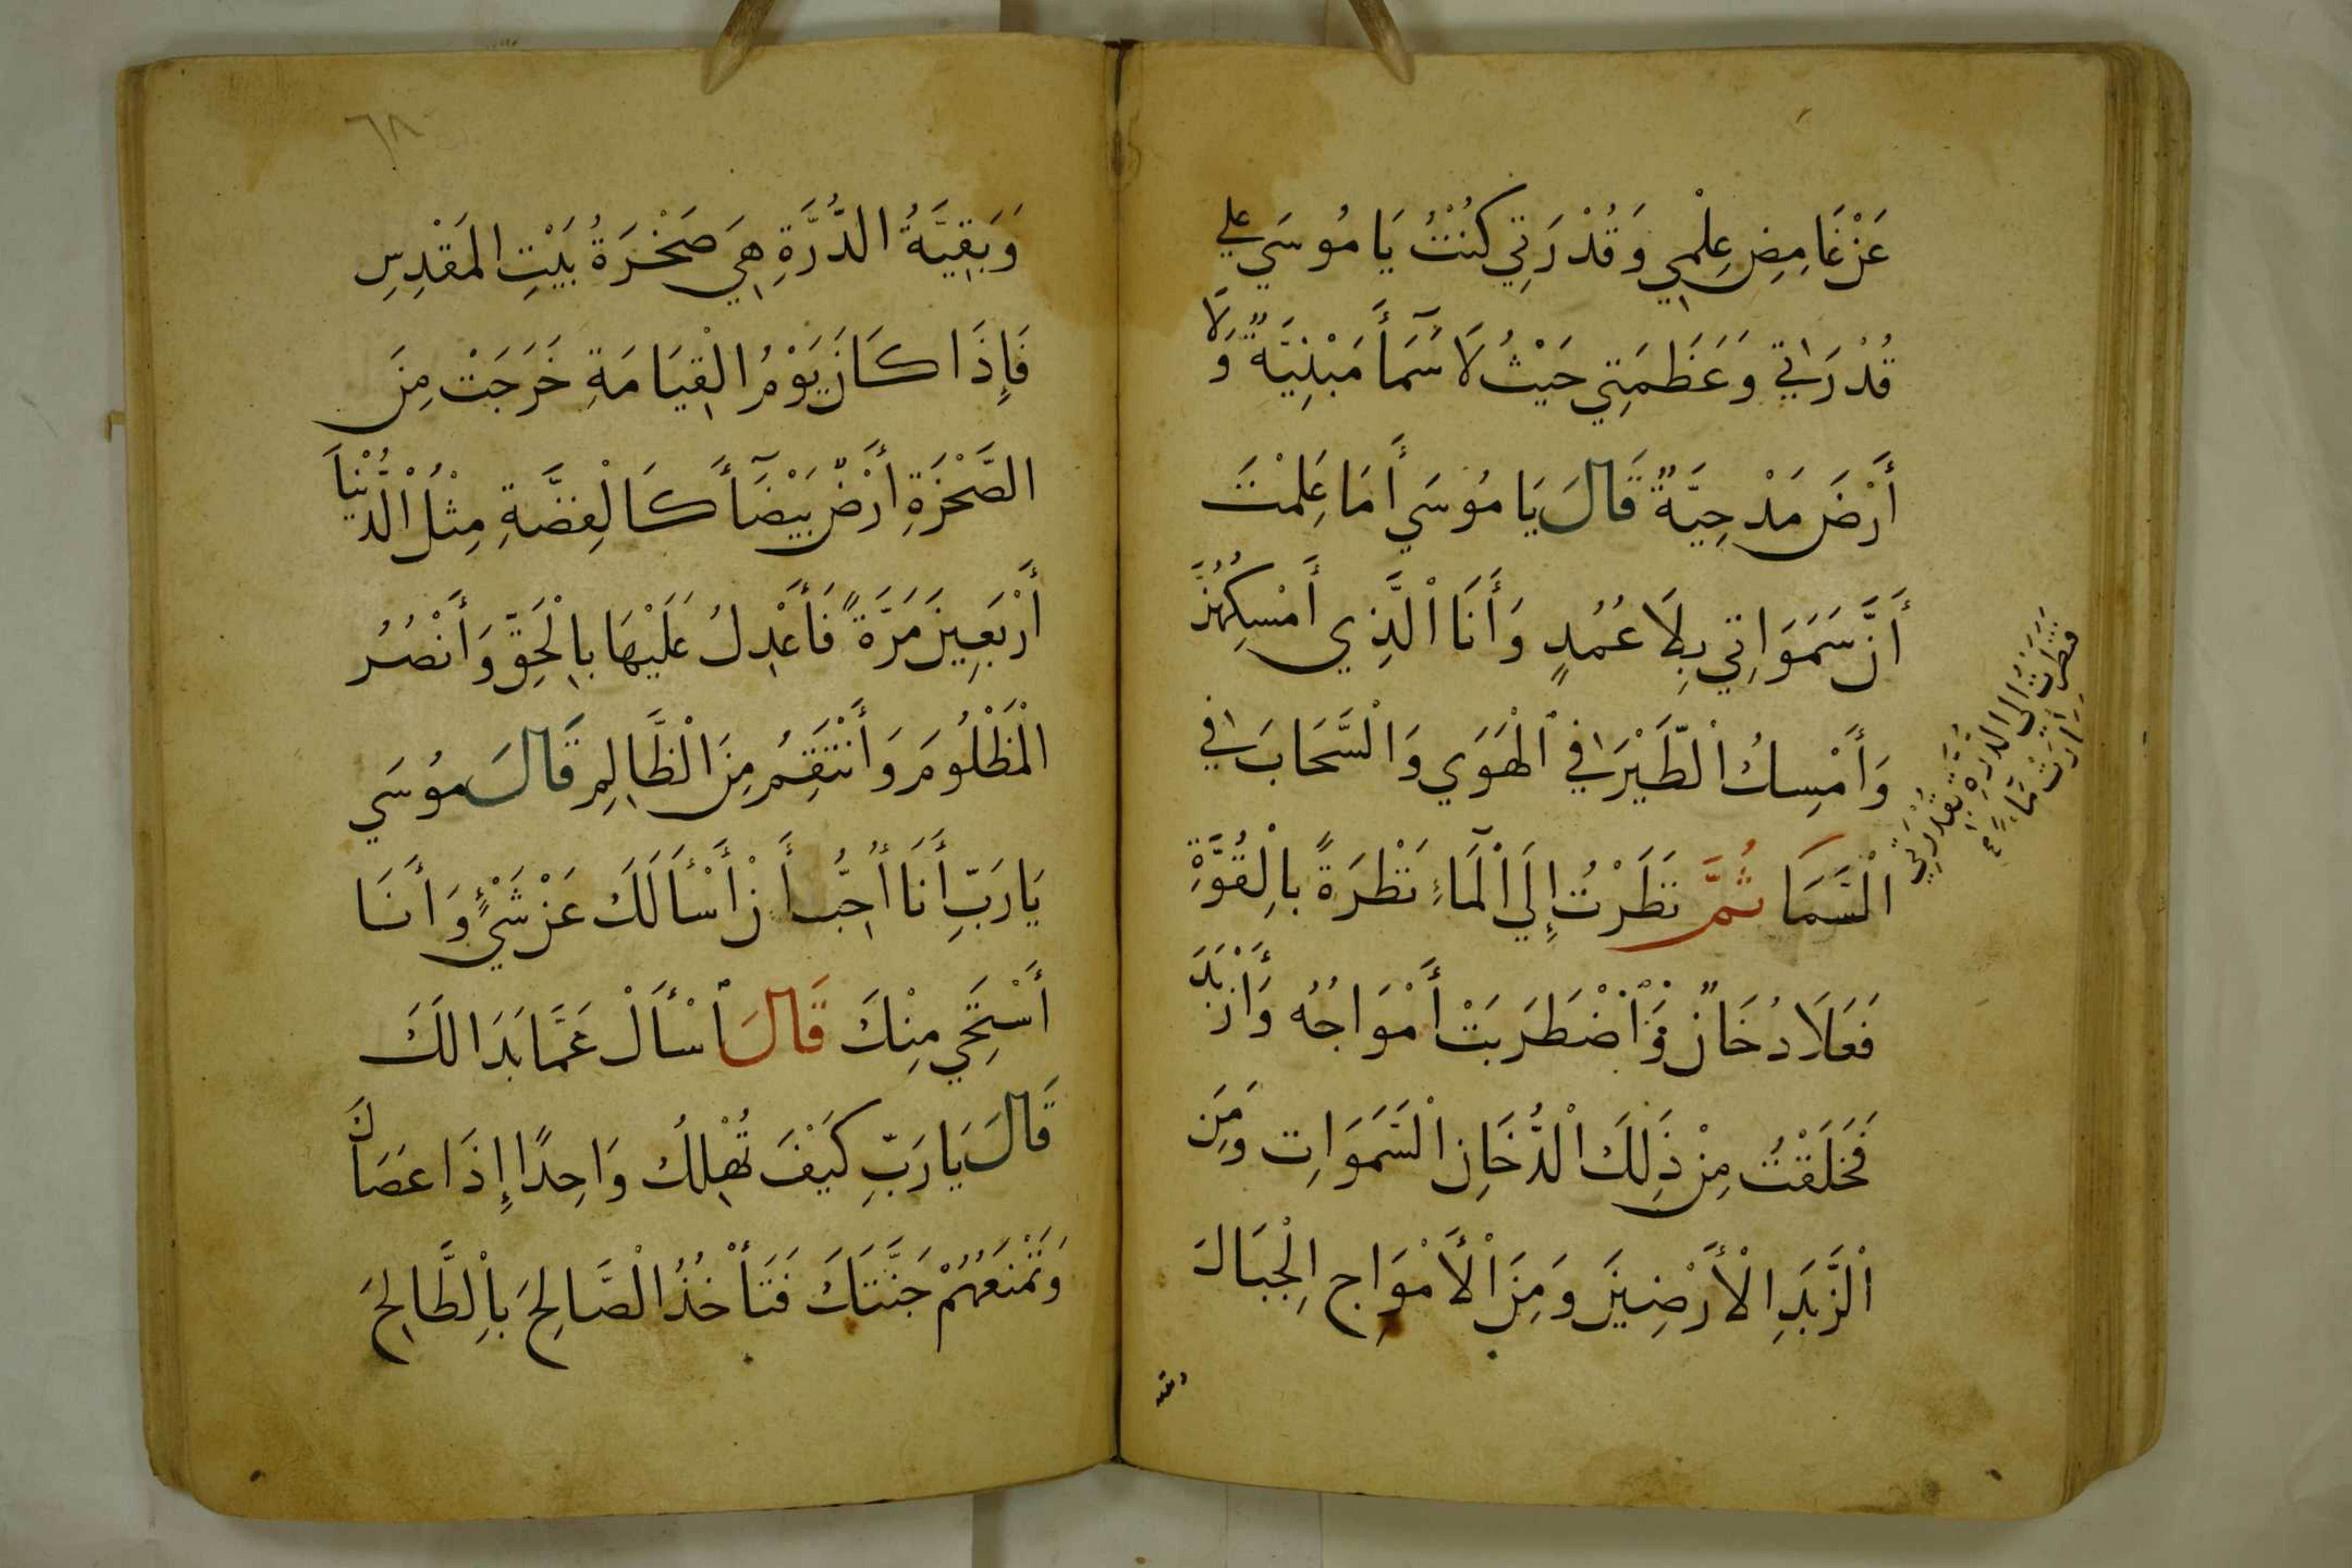 عَنْ غَامِضِ عِلْمِي وَقُدْرَتِي كُنْتُ يَا مُوسَي علي
قُدْرَتِي وَعَظَمَتِي حَيْثُ لَا سَمَآأَ مَبْنِيَّةٌ وَلَا
أَرْضَ مَدْحِيَّةٌ قَالَ يَا مُوسَي أَمَا عَلِمْتَ
أَنَّ سَمَوَاتِي بِلَا عُمُدٍ وَأَنَا اْلَّذِي أَمْسِكُهُنَّ
وَأَمْسِكُ اْلطَّيْرَ فِي اْلْهَوَي وَالْسَّحَابَ فِي
اْلْسَّمَا ثُمَّ نَظَرْتُ إِلَي اَلْمَآءِ نَظْرَةً بِالْقُوَّةِ
فَعَلَا دُخَانٌ وَاْضْطَرَبَتْ أَمْوَاجُهُ وَأَزْبَدَ
فَخَلَقْتُ مِنْ ذَلِكَ اْلدُّخَانِ اْلسَّمَوَاتِ وَمِنَ
اْلْزَّبَدِ اْلْأَرْضِينَ وَمِنَ اْلْأَمْوَاجِ اِلْجِبَالَ
فَنَظَرْتُ إِلَى الدُّرَّةِ بِقُدْرَتِي
فَصَارَتْ مَآءً
وبقية
٦٨
وَبَقِيَّةُ الدُّرَّةِ هِيَ صَخْرَةُ بَيْتِ الْمَقْدِسِ
فَإِذَا كَانَ يَوْمُ الْقِيَامَةِ خَرَجَتْ مِنَ
الصَّخْرَةِ أَرْضٌ بَيْضَآأَ كَالْفِضَّةِ مِثْلُ الْدُّنْيَا
أَرْبَعِينَ مَرَّةً فَأَعْدِلُ عَلَيْهَا بِالْحَقِّ وَأَنْصُرُ
الْمَظْلُومَ وَأَنْتَقِمُ مِنَ الْظَّالِمِ قَالَ مُوسَي
يَا رَبِّ أَنَا أُحِبُّ أَنْ أَسْأَلَكَ عَنْ شَيْءٍ وَأَنَا
أَسْتَحِي مِنْكَ قَالَ اْسْأَلْ عَمَّا بَدَا لَكَ
قَالَ يَا رَبِّ كَيْفَ تُهْلِكُ وَاحِدًا إِذَا عَصَاكَ
وَتَمْنَعُهُمْ جَنَّتَكَ فَتَأْخُذُ الْصَّالِحَ بِاْلطَّالِحِ